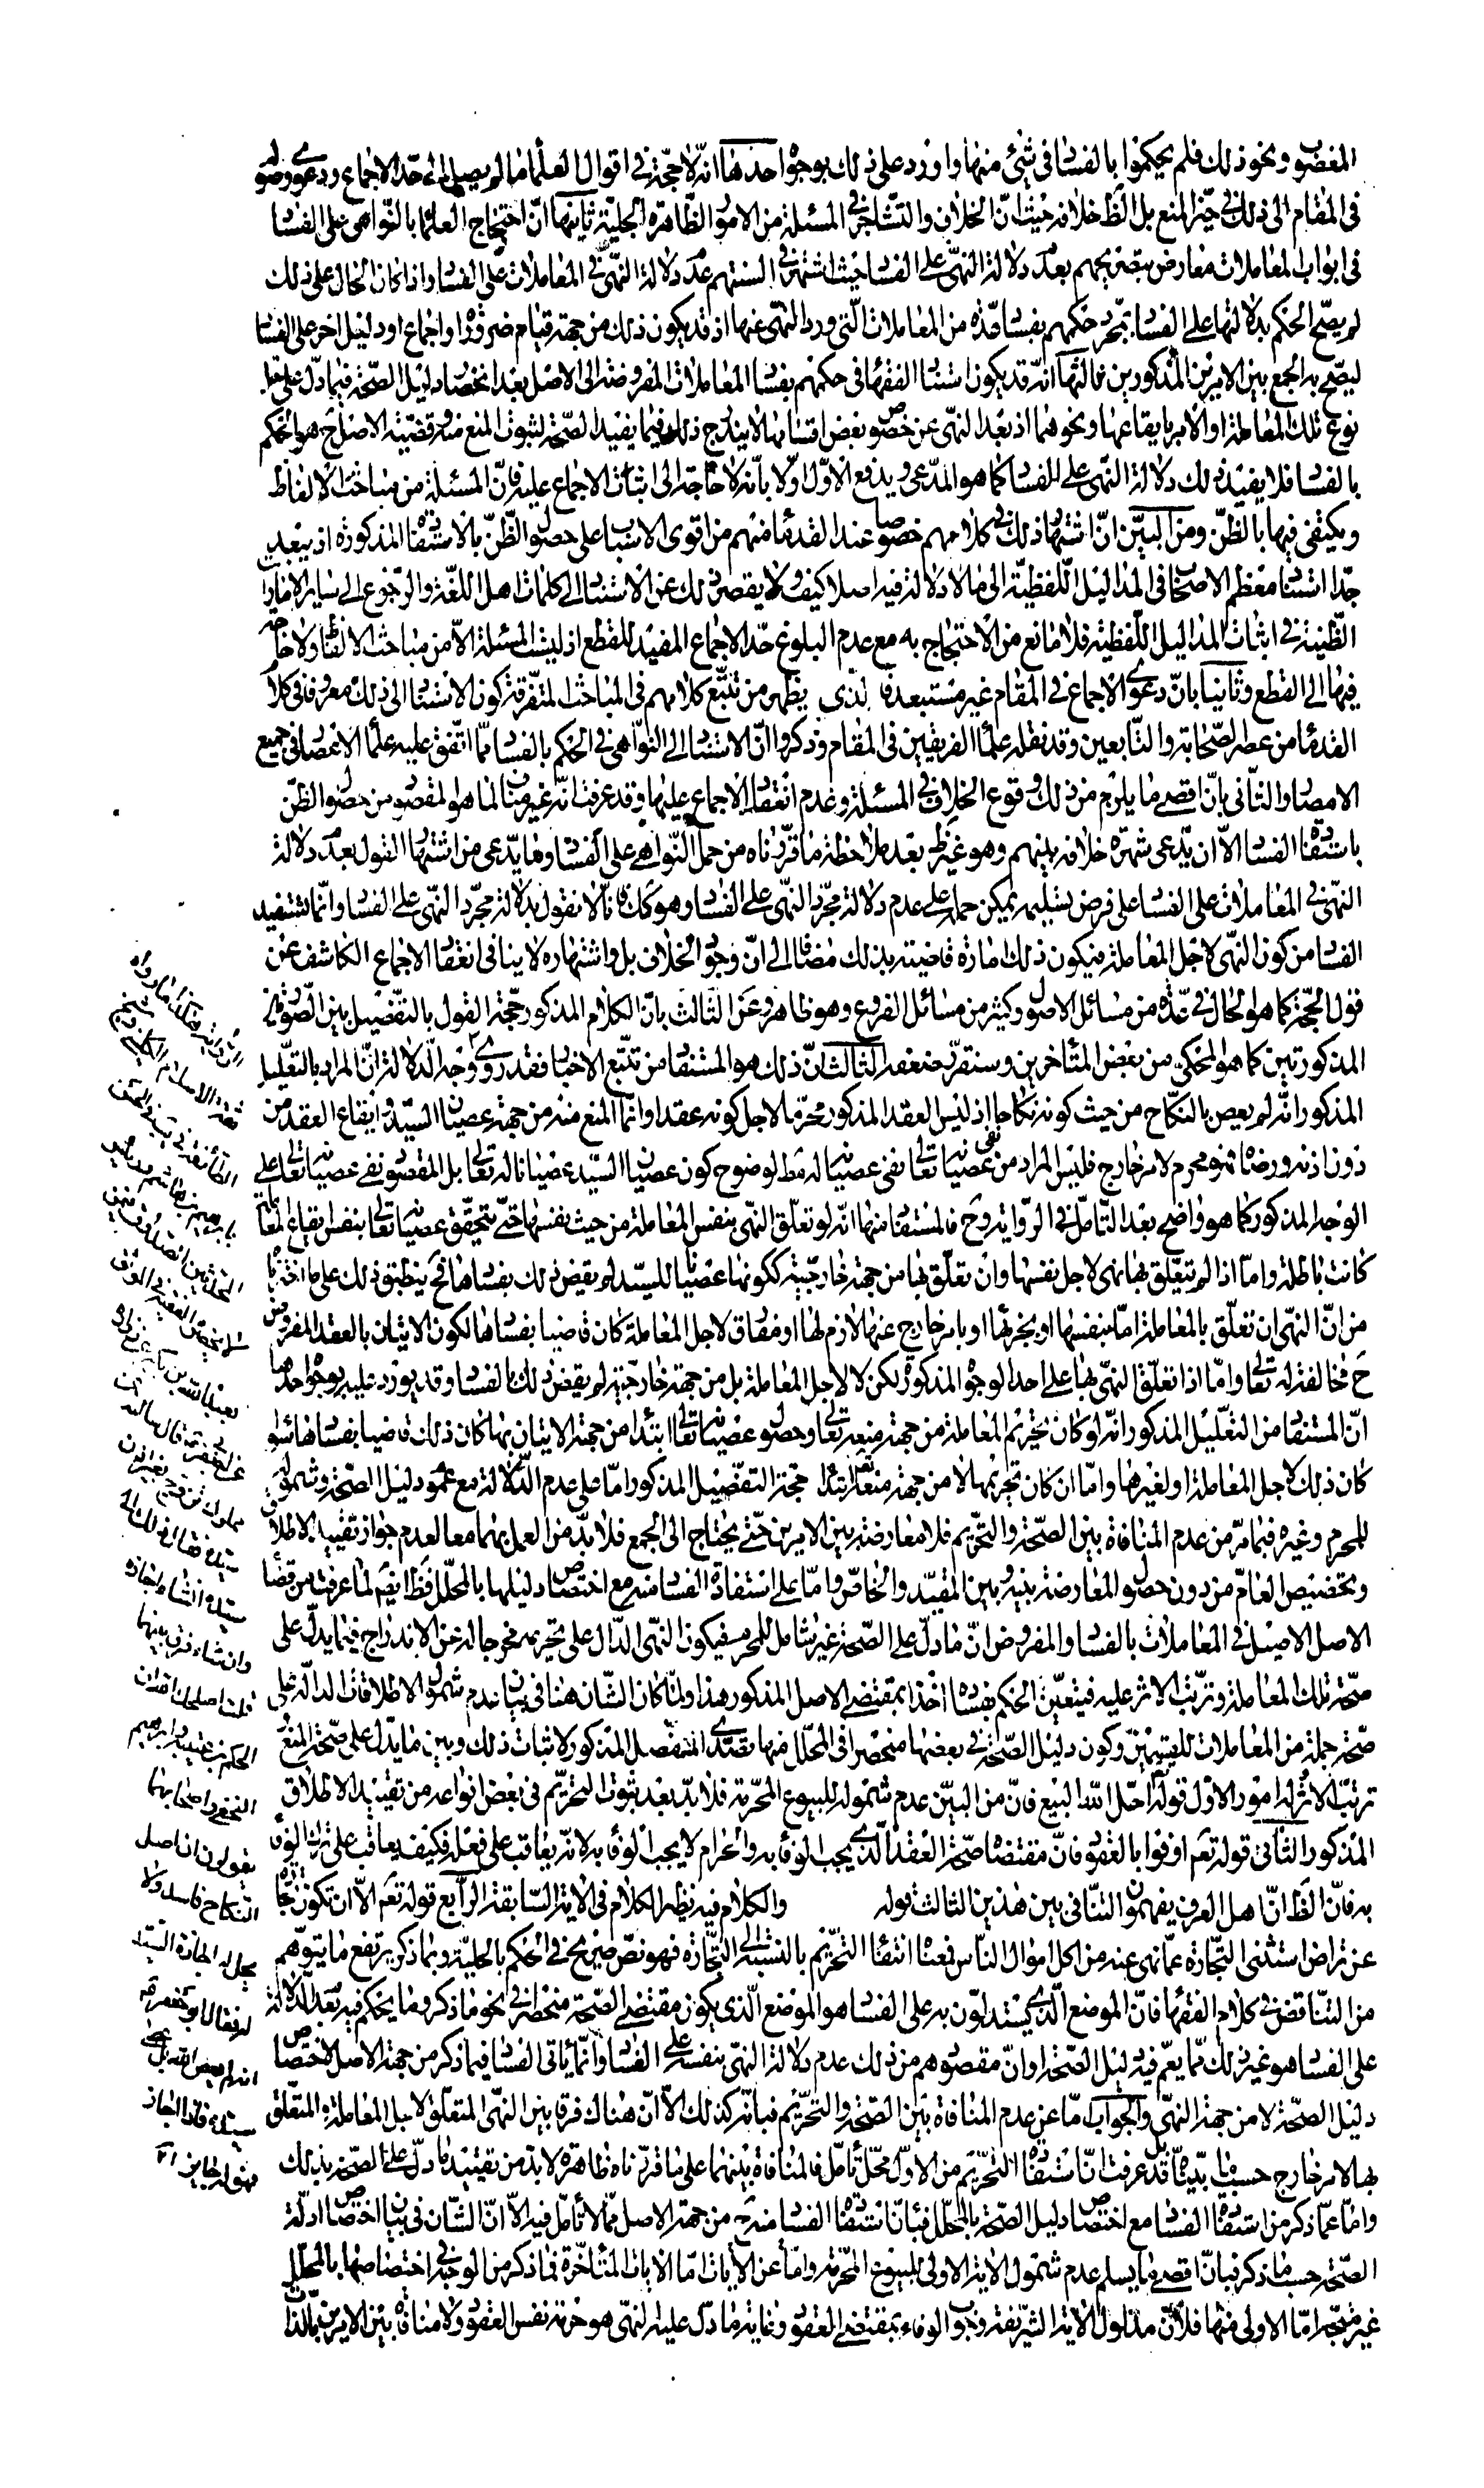 المغصوب ونحو ذلك فلم يحكموا بالفساد في شيء منها واورد على ذلك بوجوه احدها انه لا حجة في اقوال العلماء ما لم يصل الى حد الاجماع ودعوى وصوله
في المقام الى ذلك في حيز المنع بل الظ خلافه حيث ان الخلاف والتشاجر في المسئلة من الامور الظاهرة الجلية ثانيها ان احتجاج العلماء بالنواهي على الفساد
في ابواب المعاملات معارض بتصريحهم بعدم دلالة النهي على الفساد حيث اشتهر في السنتهم عدم دلالة النهي في المعاملات على الفساد واذا كان الحال على ذلك
لم يصح الحكم بدلالتها على الفساد بمجرد حكمهم بفساد عدة من المعاملات التي ورد النهي عنها اذ قد يكون ذلك من جهة قيام ضرورة او اجماع او دليل اخر على الفساد
ليصح به الجمع بين الامرين المذكورين ثالثها انه قد يكون استناد الفقهاء في حكمهم بفساد المعاملات المفروضة الى الاصل بعد انحصار دليل الصحة فيما دل على حل
نوع تلك المعاملة او الامر بايقاعها ونحوهما اذ بعد النهي عن خصوص بعض اقسامها لا يندرج ذلك فيما يفيد الصحة لثبوت المنع منه وقضية الاصل ح هو الحكم
بالفساد فلا يفيد ذلك دلالة النهي على الفساد كما هو المدعى ويدفع الاول اولا بانه لا حاجة الى اثبات الاجماع عليه فان المسئلة من مباحث الالفاظ
ويكتفى فيها بالظن ومن البين ان اشتهار ذلك في كلامهم خصوصا عند القدماء منهم من اقوى الاسباب على حصول الظن بالاستفادة المذكورة اذ يبعد
جدا استناد معظم الاصحاب في المداليل اللفظية الى ما لا دلالة فيه اصلا كيف ولا يقصر ذلك عن الاستناد الى كلمات اهل اللغة والرجوع الى ساير الامارات
الظنية في اثبات المداليل اللفظية فلا مانع من الاحتجاج به مع عدم البلوغ حد الاجماع المفيد للقطع اذ ليست المسئلة الا من مباحث الالفاظ ولا حاجة
فيها الى القطع وثانيا بان دعوى الاجماع في المقام غير مستبعدة فا لذى يظهر من تتبع كلامهم في المباحث المتفرقة كون الاستناد الى ذلك معروفا في كلام
القدماء من عصر الصحابة والتابعين وقد نقله علماء الفريقين في المقام وذكروا ان الاستناد الى النواهي في الحكم بالفساد مما اتفق عليه علماء الاعصار في جميع
الامصار والثاني بان اقصى ما يلزم من ذلك وقوع الخلاف في المسئلة وعدم انعقاد الاجماع عليها وقد عرفت انه غير مناف لما هو المقصود من حصول الظن
باستفادة الفساد الا ان يدعى شهرة خلافه بينهم وهو غير ظ بعد ملاحظة ما قررناه من حمل النواهي على الفساد وما يدعى من اشتهار القول بعدم دلالة
النهي في المعاملات على الفساد على فرض تسليمه يمكن حمله على عدم دلالة مجرد النهي على الفساد وهو كك فانا لا نقول بدلالة مجرد النهي على الفساد وانما نستفيد
الفساد من كون النهي لاجل المعاملة فيكون ذلك امارة قاضية بذلك مضافا الى ان وجود الخلاف بل واشتهاره لا ينافي انعقاد الاجماع الكاشف عن
قول الحجة كما هو الحال في عدة من مسائل الاصول وكثير من مسائل الفروع وهو ظاهر وعن الثالث بان الكلام المذكور حجة القول بالتفصيل بين الصورتين
المذكورتين كما هو المحكي من بعض المتاخرين وسنقرر ضعفه الثالث ان ذلك هو المستفاد من تتبع الاخبار فقد روى وجه الدلالة ان المراد بالتعليل
المذكور انه لم يعص بالنكاح من حيث كونه نكاحا اذ ليس العقد المذكور محرما لاجل كونه عقدا وانما المنع منه من جهة عصيان السيد وايقاع العقد من
دون اذنه ورضاه فهو محرم لامر خارج فليس المراد من نفي عصيانه تعالى نفي عصيانه له مط لوضوح كون عصيان السيد عصيانا له تعالى بل المقصود نفي عصيانه تعالى على
الوجه المذكور كما هو واضح بعد التامل في الرواية وح فالمستفاد منها انه لو تعلق النهي بنفس المعاملة من حيث نفسها حتى يتحقق عصيانه تعالى بنفس ايقاع المعاملة
كانت باطلة واما اذا لم يتعلق بها نهي لاجل نفسها وان تعلق بها من جهة خارجية ككونها عصيانا للسيد لم يقض ذلك بفسادها فح ينطبق ذلك على ما اخترناه
من ان النهي ان تعلق بالمعاملة اما بنفسها او بجزئها او بامر خارج عنها لازم لها او مفارق لاجل المعاملة كان قاضيا بفسادها لكون الاتيان بالعقد المفروض
ح مخالفة له تعالى واما اذا تعلق النهي بها على احد الوجوه المذكورة لكن لا لاجل المعاملة بل من جهة خارجية لم يقض ذلك بالفساد وقد يورد عليه بوجوه احدها
ان المستفاد من التعليل المذكور انه لو كان تحريم المعاملة من جهة منعه تعالى وحصول عصيانه تعالى ابتداء من جهة الاتيان بها كان ذلك قاضيا بفسادها سواء
كان ذلك لاجل المعاملة او لغيرها واما ان كان تحريمها لا من جهة منعه تعالى ابتداء حجة التفصيل المذكور اما على عدم الدلالة مع عموم دليل الصحة وشموله
للمحرم وغيره فبما مر من عدم المنافاة بين الصحة والتحريم فلا معارضة بين الامرين حتى يحتاج الى الجمع فلا بد من العمل بهما معا لعدم جواز تقييد الاطلاق
وتخصيص العام من دون حصول المعارضة بينه وبين المقيد والخاص واما على استفادة الفساد منه مع اختصاص دليلها بالمحلل فظ ايضا لما عرفت من قضاء
الاصل الاصيل في المعاملات بالفساد والمفروض ان ما دل على الصحة غير شامل للمحرم فيكون النهي الدال على تحريمه مخرجا له عن الاندراج فيما يدل على
صحة تلك المعاملة وترتب الاثر عليه فيتعين الحكم بفساده اخذا بمقتضى الاصل المذكور هذا ولما كان الشان هنا في بيان عدم شمول الاطلاقات الدالة على
صحة جملة من المعاملات للقسمين وكون دليل الصحة في بعضها منحصرا في المحلل منها تصدى المفصل المذكور لاثبات ذلك وبين ما يدل على صحة المنع
ترتب الاثر له امور الاول قوله تع احل الله البيع فان من البين عدم شموله للبيوع المحرمة فلا بد بعد ثبوت التحريم في بعض انواعه من تقييد الاطلاق
المذكور الثاني قوله تعم اوفوا بالعقود فان مقتضاه صحة العقد الذي يجب الوفاء به والحرام لا يجب الوفاء به لانه يعاقب على فعله فكيف يعاقب على ترك الوفاء
به فان الظ ان اهل العرف يفهمون التنافي بين هذين الثالث قوله والكلام فيه نظير الكلام في الاية السابقة الرابع قوله تعم الا ان تكون تجارة
عن تراض استثنى التجارة عما نهى عنه من اكل اموال الناس فعنا انتفاء التحريم بالنسبة الى التجارة فهو نص صريح في الحكم بالحلية وبما ذكر يرتفع ما يتوهم
من التناقض في كلام الفقهاء فان الموضع الذي يستدلون به على الفساد هو الموضع الذي يكون مقتضى الصحة منحصرا في نحو ما ذكر وما يحكم فيه بعد الدلالة
على الفساد هو غير ذلك مما يعم فيه دليل الصحة او ان مقصودهم من ذلك عدم دلالة النهي بنفسه على الفساد وانما ياتي الفساد فيما ذكر من جهة الاصل لاختصاص
دليل الصحة لا من جهة النهي والجواب اما عن عدم المنافاة بين الصحة والتحريم فبانه كذلك الا ان هناك فرقا بين النهي المتعلق لاجل المعاملة والمتعلق
بها لامر خارج حسبما بيناه بل قد عرفت ان استفادة التحريم من الاول محل تامل فالمنافاة بينهما على ما قررناه ظاهرة لا بد من تقييد ما دل على الصحة بذلك
واما عما ذكر من استفادة الفساد مع اختصاص دليل الصحة بالمحلل فبان استفادة الفساد منه ح من جهة الاصل مما لا تامل فيه الا ان الشان في بيان اختصاص ادلة
الصحة حسبما ذكر فبان اقصى ما يسلم عدم شمول الاية الاولى للبيوع المحرمة واما عن الايات اما الايات المتاخرة فما ذكر من الوجه في اختصاصها بالمحلل
غير متجه اما الاولى منها فلان مدلول الاية الشريفة وجوب الوفاء بمقتضى العقود وغاية ما دل عليه النهي هو حرمة نفس العقود ولا منافاة بين الامرين بالذات
بعبد الله بن بكير عن زرارة
عن ابي جعفر ع قال سالته
مملوك تزوج بغير اذن
سيده فقال ذلك الى
سيده ان شاء اجازه
وان شاء فرق بينهما
قلت اصلحك الله ان
الحكم بن عتيبة وابراهيم
النخعي واصحابهما
يقولون ان اصل
النكاح فاسد ولا
يحل له اجازة السيد
له فقال ابو جعفر ع
انه لم يعص الله انما عصى
سيده فاذا اجاز
فهو له جايز